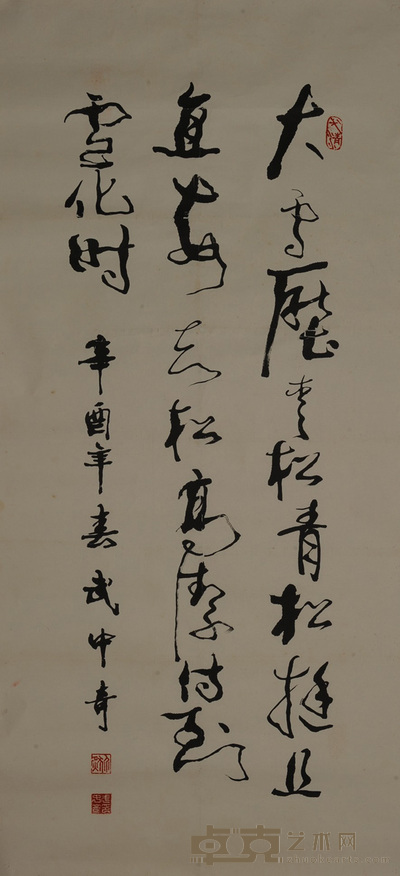 大雪壓青松青松挺且
直要知松高潔待到
雪化时
辛酉年春武中奇
卓克艺术网